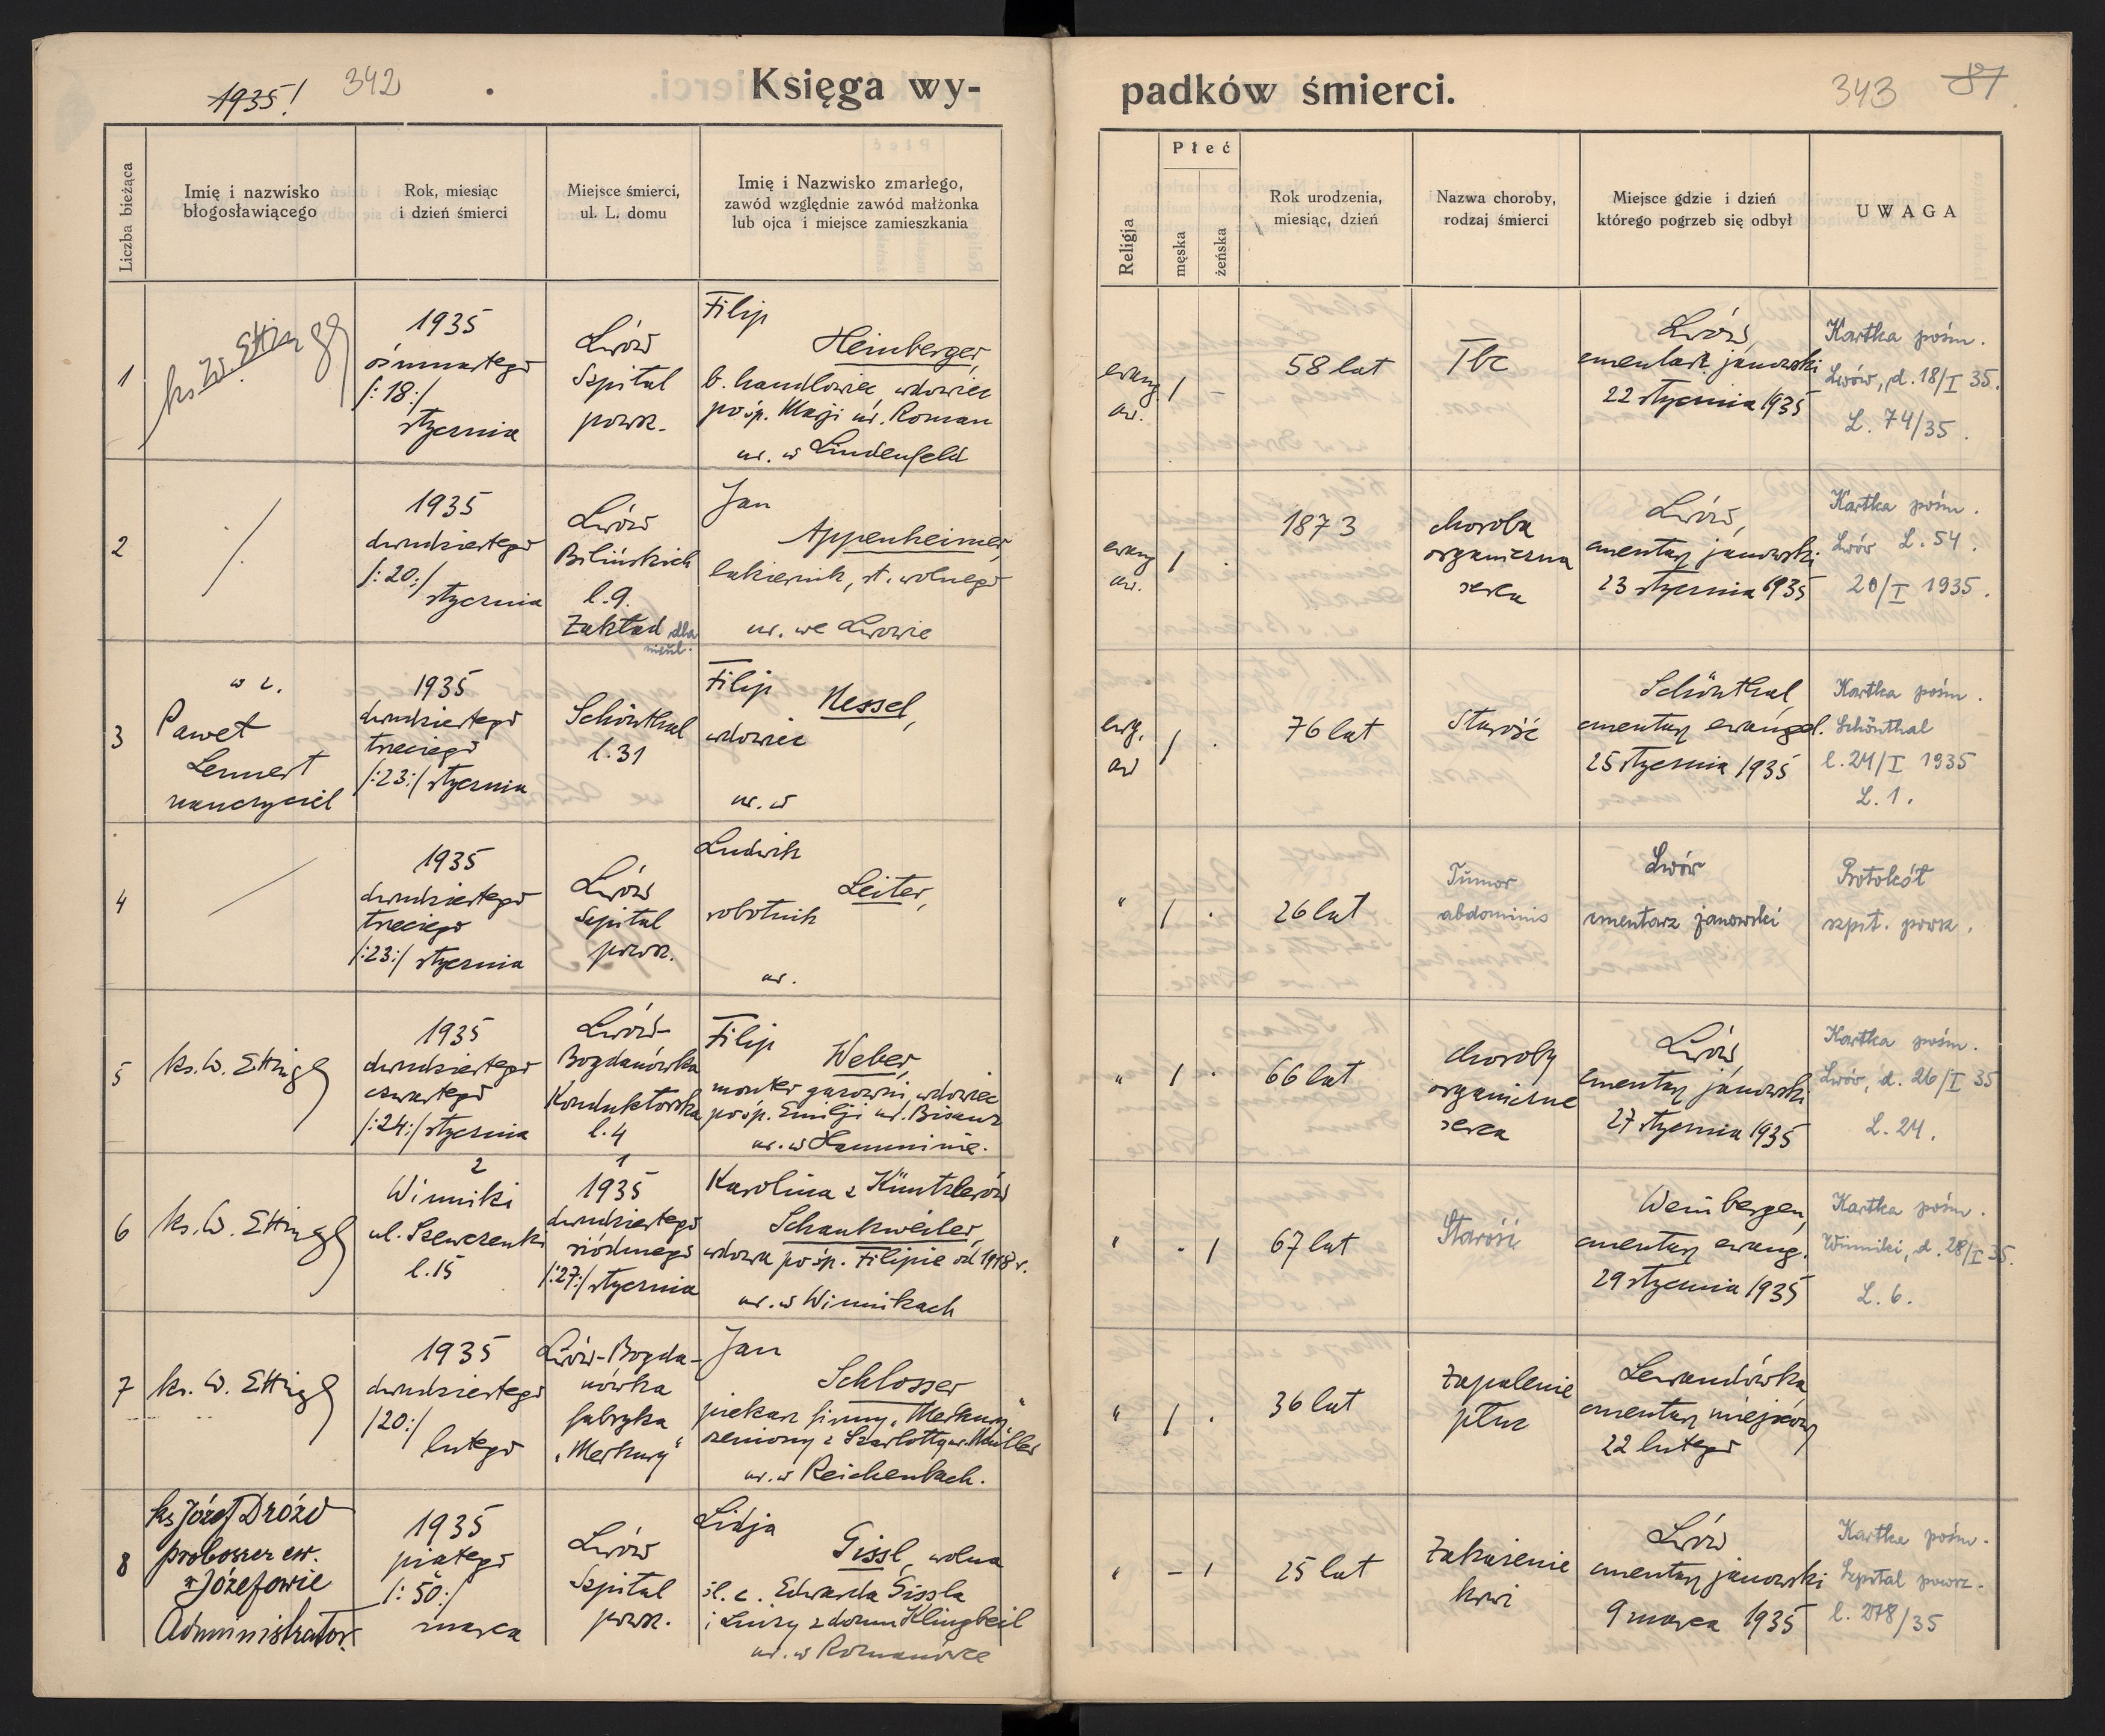 1935!
342
Księga wy-
padków śmierci.
343
87
Liczba bieżąca
Imię i nazwisko
błogosławiącego
Rok, miesiąc
i dzień śmierci
Miejsce śmierci,
ul. L. domu
Imię i Nazwisko zmarłego,
zawód względnie zawód małżonka
lub ojca i miejsce zamieszkania
Religja
Płeć
męska
żeńska
Rok urodzenia,
miesiąc, dzień
Nazwa choroby,
rodzaj śmierci
Miejsce gdzie i dzień
którego pogrzeb się odbył
UWAGA
1
ks. W. Ettinger
1935
ośmnastego
/:18:/
stycznia
Lwów
Szpital
powsz.
Filip
Heinberger,
b. handlowiec, wdowiec
po śp. Marji ur. Roman
ur. w Lindenfeld
ewang.
aw.
/
58 lat
Tbc
Lwów,
cmentarz janowski
22 stycznia 1935
Kartka pośm.
Lwów, d. 18/I 35.
L. 74/35.
2
1935
dwudziestego
/:20:/
stycznia
Lwów
Bilińskich
l. 9.
Zakład dla
nieul.
Jan
Appenheimer,
cukiernik, st. wolnego
ur. we Lwowie
ewang
aw.
/
1873
choroba
organiczna
serca
Lwów,
cmentarz janowski
23 stycznia 1935
Kartka pośm.
Lwów L. 54.
20/I 1935.
3
w z.
Paweł
Lennert
nauczyciel
1935
dwudziestego
trzeciego
/:23:/ stycznia
Schönthal
l. 31
Filip
Nessel,
wdowiec
ur. w
ewg.
aw
/
76 lat
Starość
Schönthal,
cmentarz ewangel.
25 stycznia 1935
Kartka pośm.
Schönthal
l. 24/I 1935
L. 1.
4
1935
dwudziestego
trzeciego
/:23:/ stycznia
Lwów
Szpital
powsz.
Ludwik
Leiter,
robotnik
ur.
"
/
26 lat
Tumor
abdominis
Lwów
cmentarz janowski
Protokół
szpit. powsz.
5
ks. W. Ettinger
1935
dwudziestego
czwartego
/:24:/ stycznia
Lwów-
Bogdanówka
Konduktorska
l. 4
Filip
Weber,
monter gazowni, wdowiec
po śp. Emilji ur. Bisanz
ur. w Hamminie.
"
/
66 lat
choroby
organiczne
serca
Lwów
cmentarz janowski
27 stycznia 1935
Kartka pośm.
Lwów, d. 26/I 35
L. 24.
6
ks. W. Ettinger
2
Winniki
ul. Szewczenki
l. 15
1
1935
dwudziestego
siódmego
/:27:/ stycznia
Karolina z Küntzlerów
Schankweiler,
wdowa po śp. Filipie od 1918 r.
ur. w Winnikach
"
/
67 lat
Starość
Weinbergen,
cmentarz ewang.
29 stycznia 1935
Kartka pośm.
Winniki, d. 28/I 35.
L. 6.
7
ks. W. Ettinger
1935
dwudziestego
/20:/
lutego
Lwów-Bogda-
nówka
fabryka
"Merkury"
Jan
Schlosser
piekarz firmy "Merkury"
żeniony z Szarlottą ur. Müller
ur. w Reichenbach.
"
/
36 lat
Zapalenie
płuc
Lewandówka
cmentarz miejscowy
22 lutego
8
ks Józef Drozd
proboszcz ew.
w Józefowie
Administrator.
1935
piątego
/:5o:/
marca
Lwów
Szpital
powsz.
Lidja
Gissl, wolna
śl. c. Edwarda Gissla
i Luizy z domu Klingbeil
ur. w Romanówce
"
/
25 lat
Zakażenie
krwi
Lwów
cmentarz janowski
9 marca 1935
Kartka pośm.
Szpital powsz.
l. 278/35